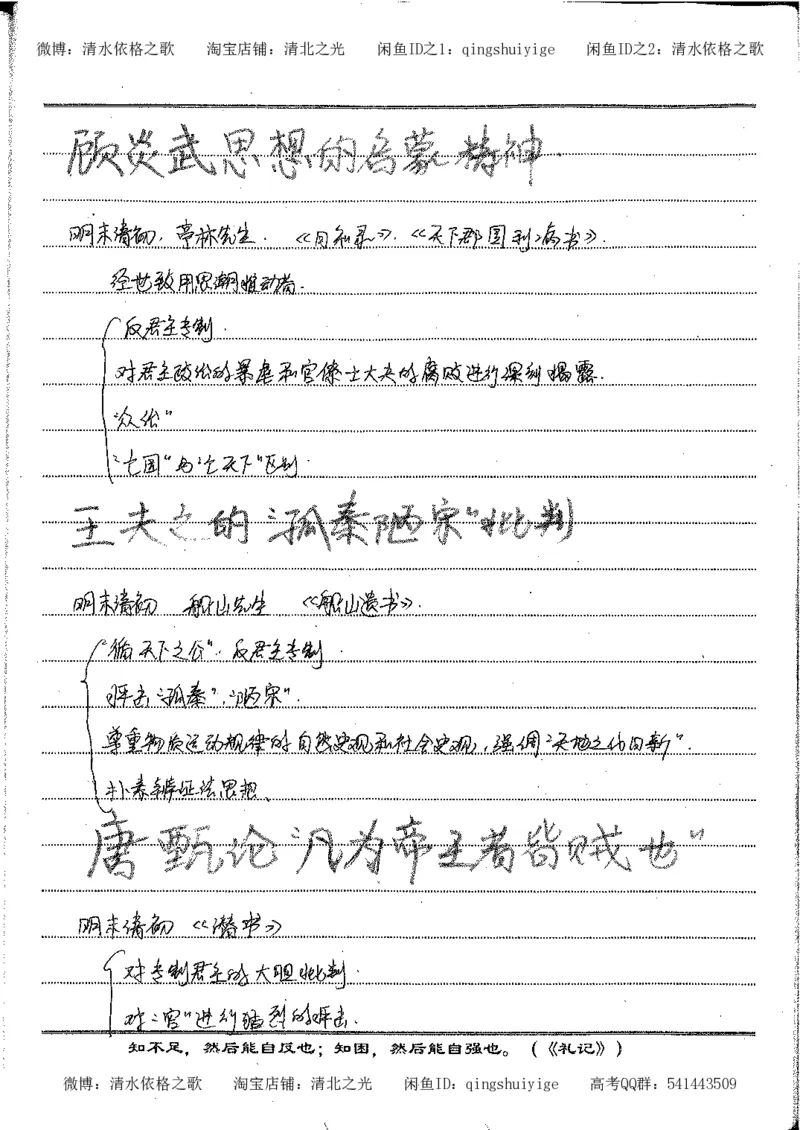 微博：清水依格之歌 淘宝店铺：清北之光 闲鱼ID之1：qingshuiyige 闲鱼ID之2：清水依格之歌
顾炎武思想的启蒙精神.
明末清初. 亭林先生. 《日知录》. 《天下郡国利病书》.
经世致用思潮推动者.
反君主专制.
对君主政治的暴虐和官僚士大夫的腐败进行深刻揭露.
"众治"
"亡国"与"亡天下"区别.
王夫之的"孤秦陋宋"批判
明末清初 船山先生 《船山遗书》.
"循天下之公". 反君主专制.
抨击"孤秦". "陋宋".
尊重物质运动规律的自然史观和社会史观, 强调"天地之化日新".
朴素辩证法思想.
唐甄论"凡为帝王者皆贼也"
明末清初 《潜书》
对专制君主的大胆批判.
对"官"进行猛烈的抨击.
知不足，然后能自反也；知困，然后能自强也。（《礼记》）
微博：清水依格之歌 淘宝店铺：清北之光 闲鱼ID：qingshuiyige 高考QQ群：541443509